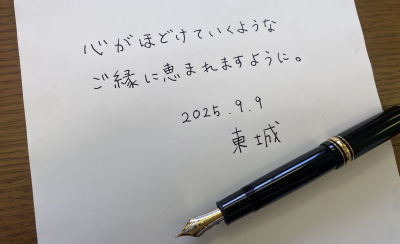 心がほどけていくような
ご縁に恵まれますように。
2025.9.9
東城